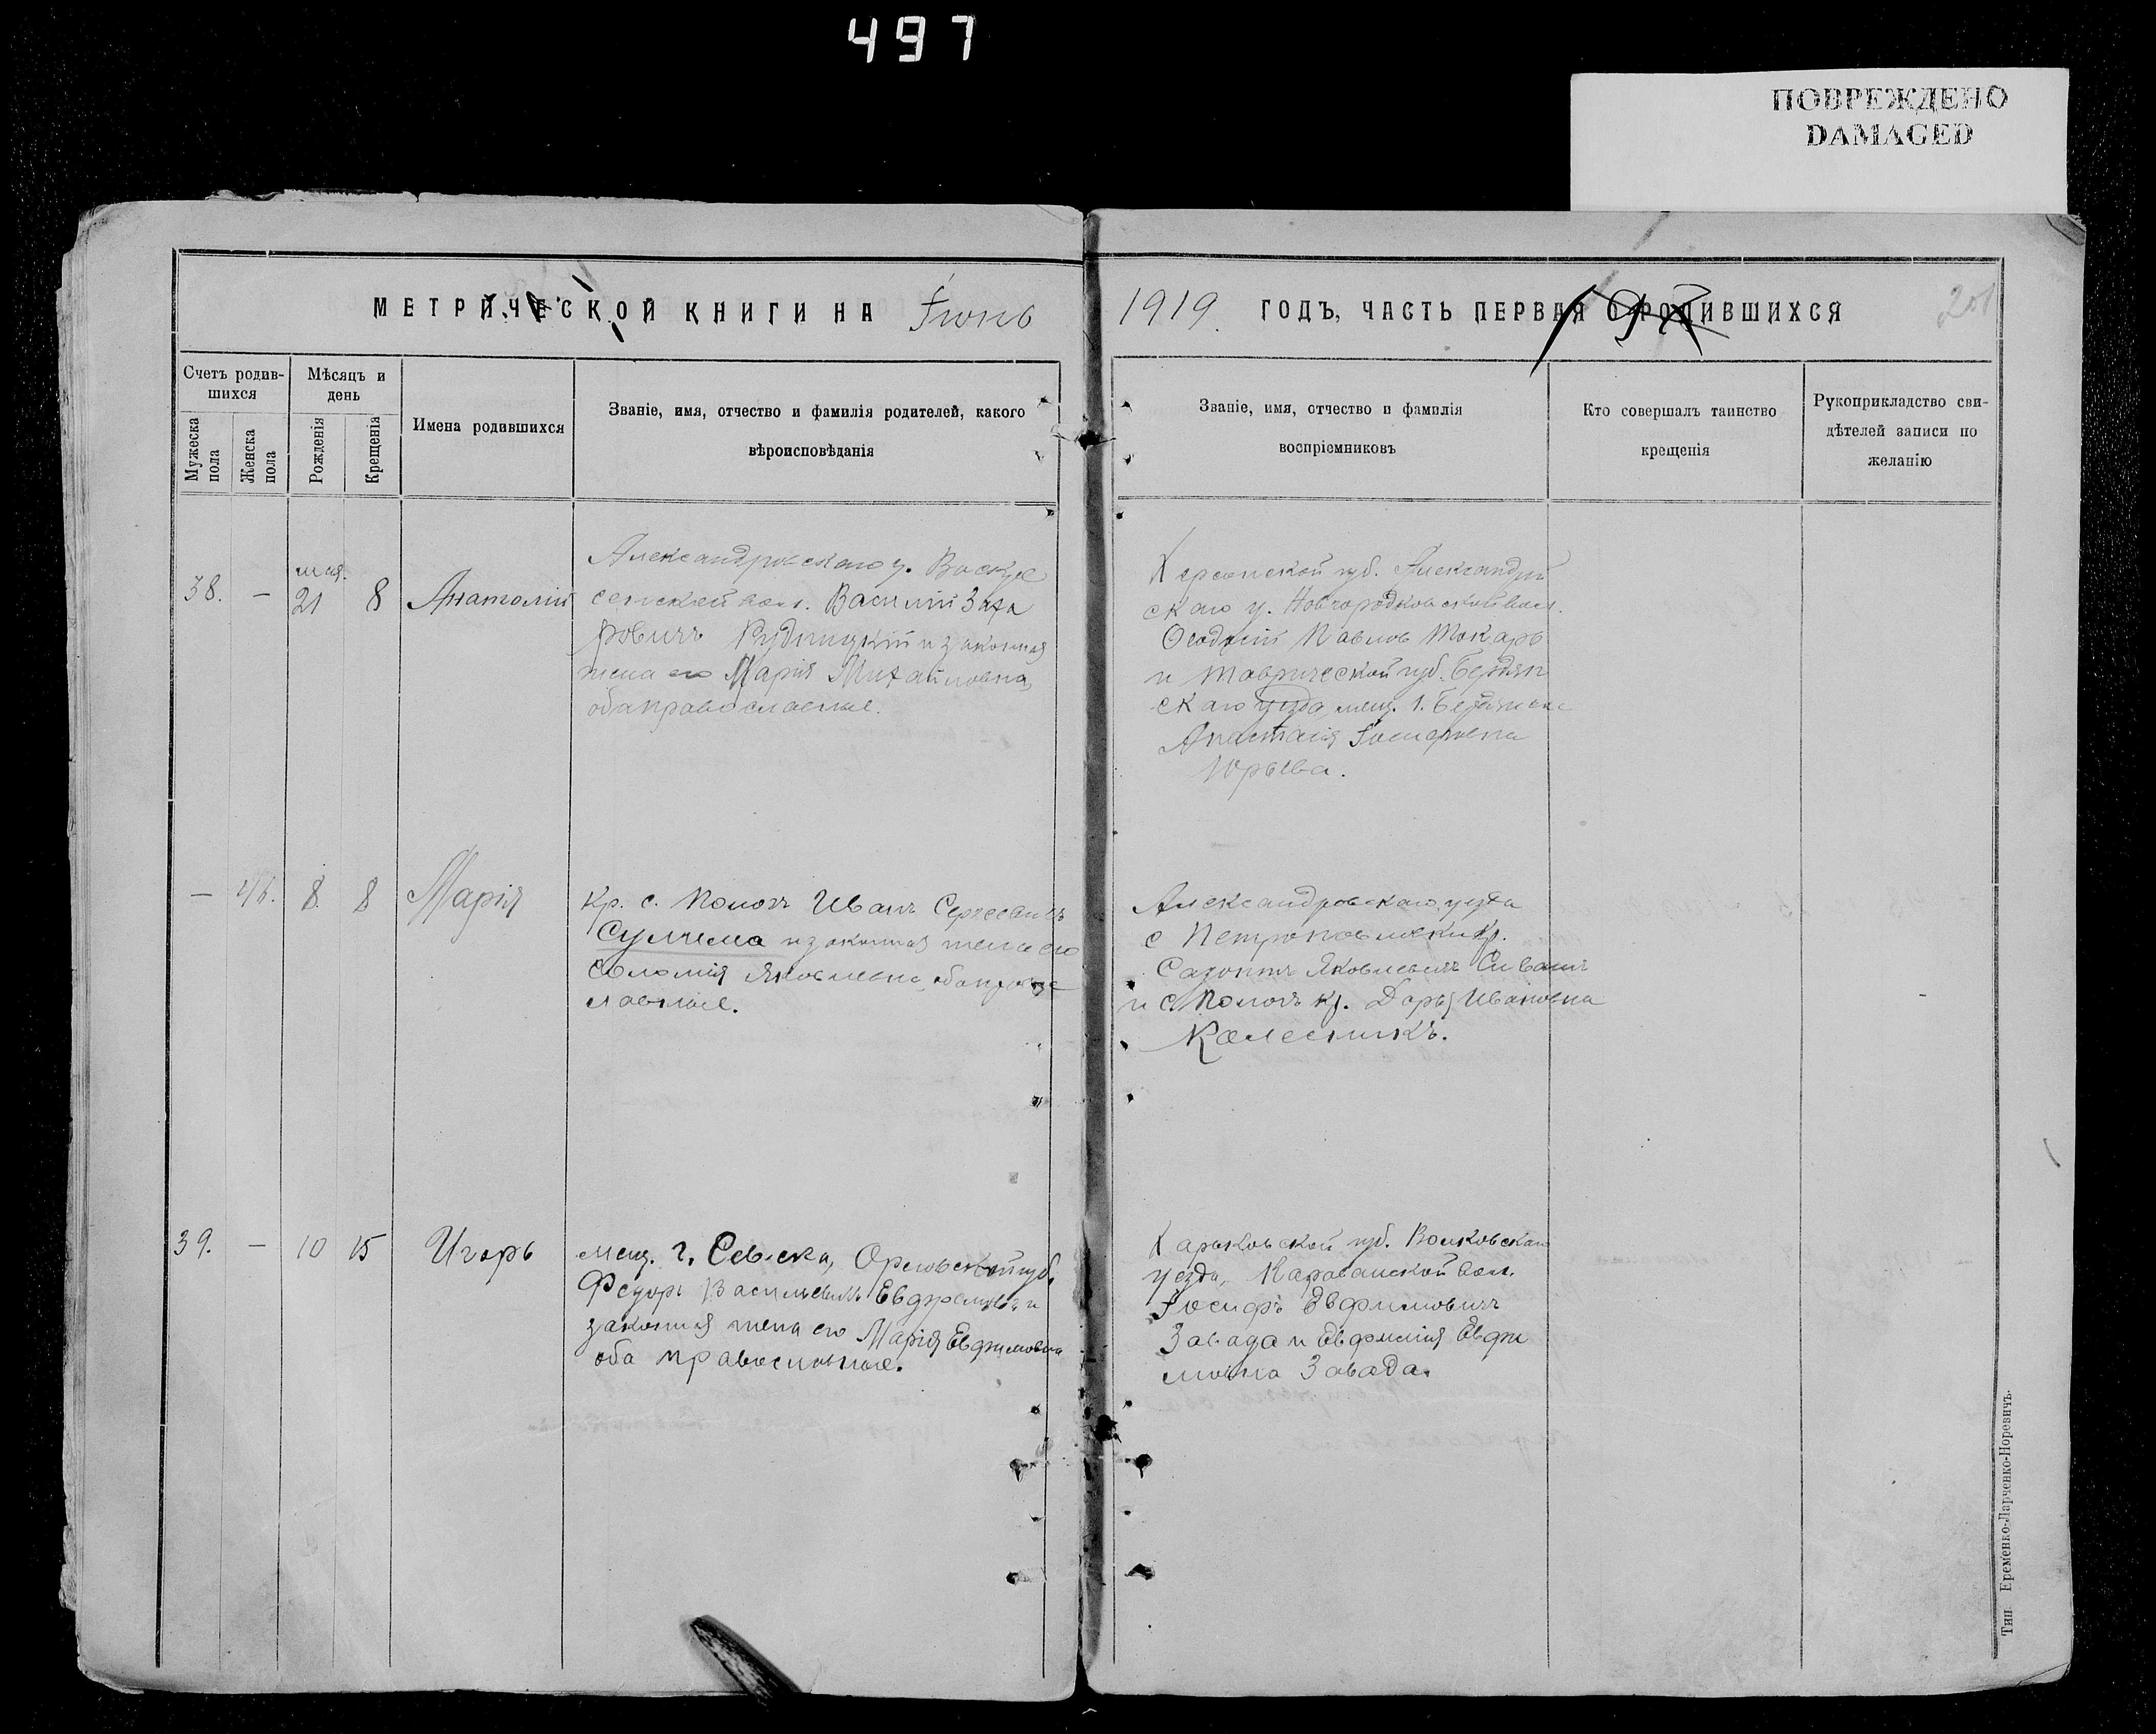 497
ПОВРЕЖДЕНО
DAMAGED
МЕТРИЧЕСКОЙ КНИГИ НА Iюнь
1919 ГОДЪ, ЧАСТЬ ПЕРВАЯ О РОДИВШИХСЯ
201
Счетъ родив-
шихся
Мужеска
пола
Женска
пола
Мѣсяцъ и
день
Рожденія
Крещенія
Имена родившихся
Званіе, имя, отчество и фамилія родителей, какого
вѣроисповѣданія
Званіе, имя, отчество и фамилія
воспріемниковъ
Кто совершалъ таинство
крещенія
Рукоприкладство сви-
дѣтелей записи по
желанію
38. — мая. 21 8 Анатолій
Александровскаго у. Воскре
сенской вол. Василій Заха
ровичъ Рудницкій и законная
жена его Марія Михайловна,
оба православные.
Херсонской губ. Александрій
скаго у. Новгородковской вол.
Ѳеодосій Павловъ Токарь
и Таврической губ. Бердян
скаго уезда, мещ. г. Бердянска
Анастасія Іосифовна
Юрьева.
— 46. 8. 8 Марія
Кр. с. Пологъ Иванъ Сергеевичъ
Сулима и законная жена его
Соломія Яковлевна, оба право
славные.
Александровскаго уезда
с Петропавловки кр.
Созонтъ Яковлевичъ Сивашъ
и с. Пологъ кр. Дарья Ивановна
Колесникъ.
39. — 10 15 Игорь
мещ. г. Севска, Орловской губ.
Федоръ Васильевичъ Евдокимовъ и
законная жена его Марія Евфимовна
оба православные.
Харьковской губ. Волковскаго
уезда, Караванской вол.
Іосифъ Евфимовичъ
Завада и Евфимія Евфи
мовна Завада.
Тип. Еременко-Ларченко-Норевичъ.